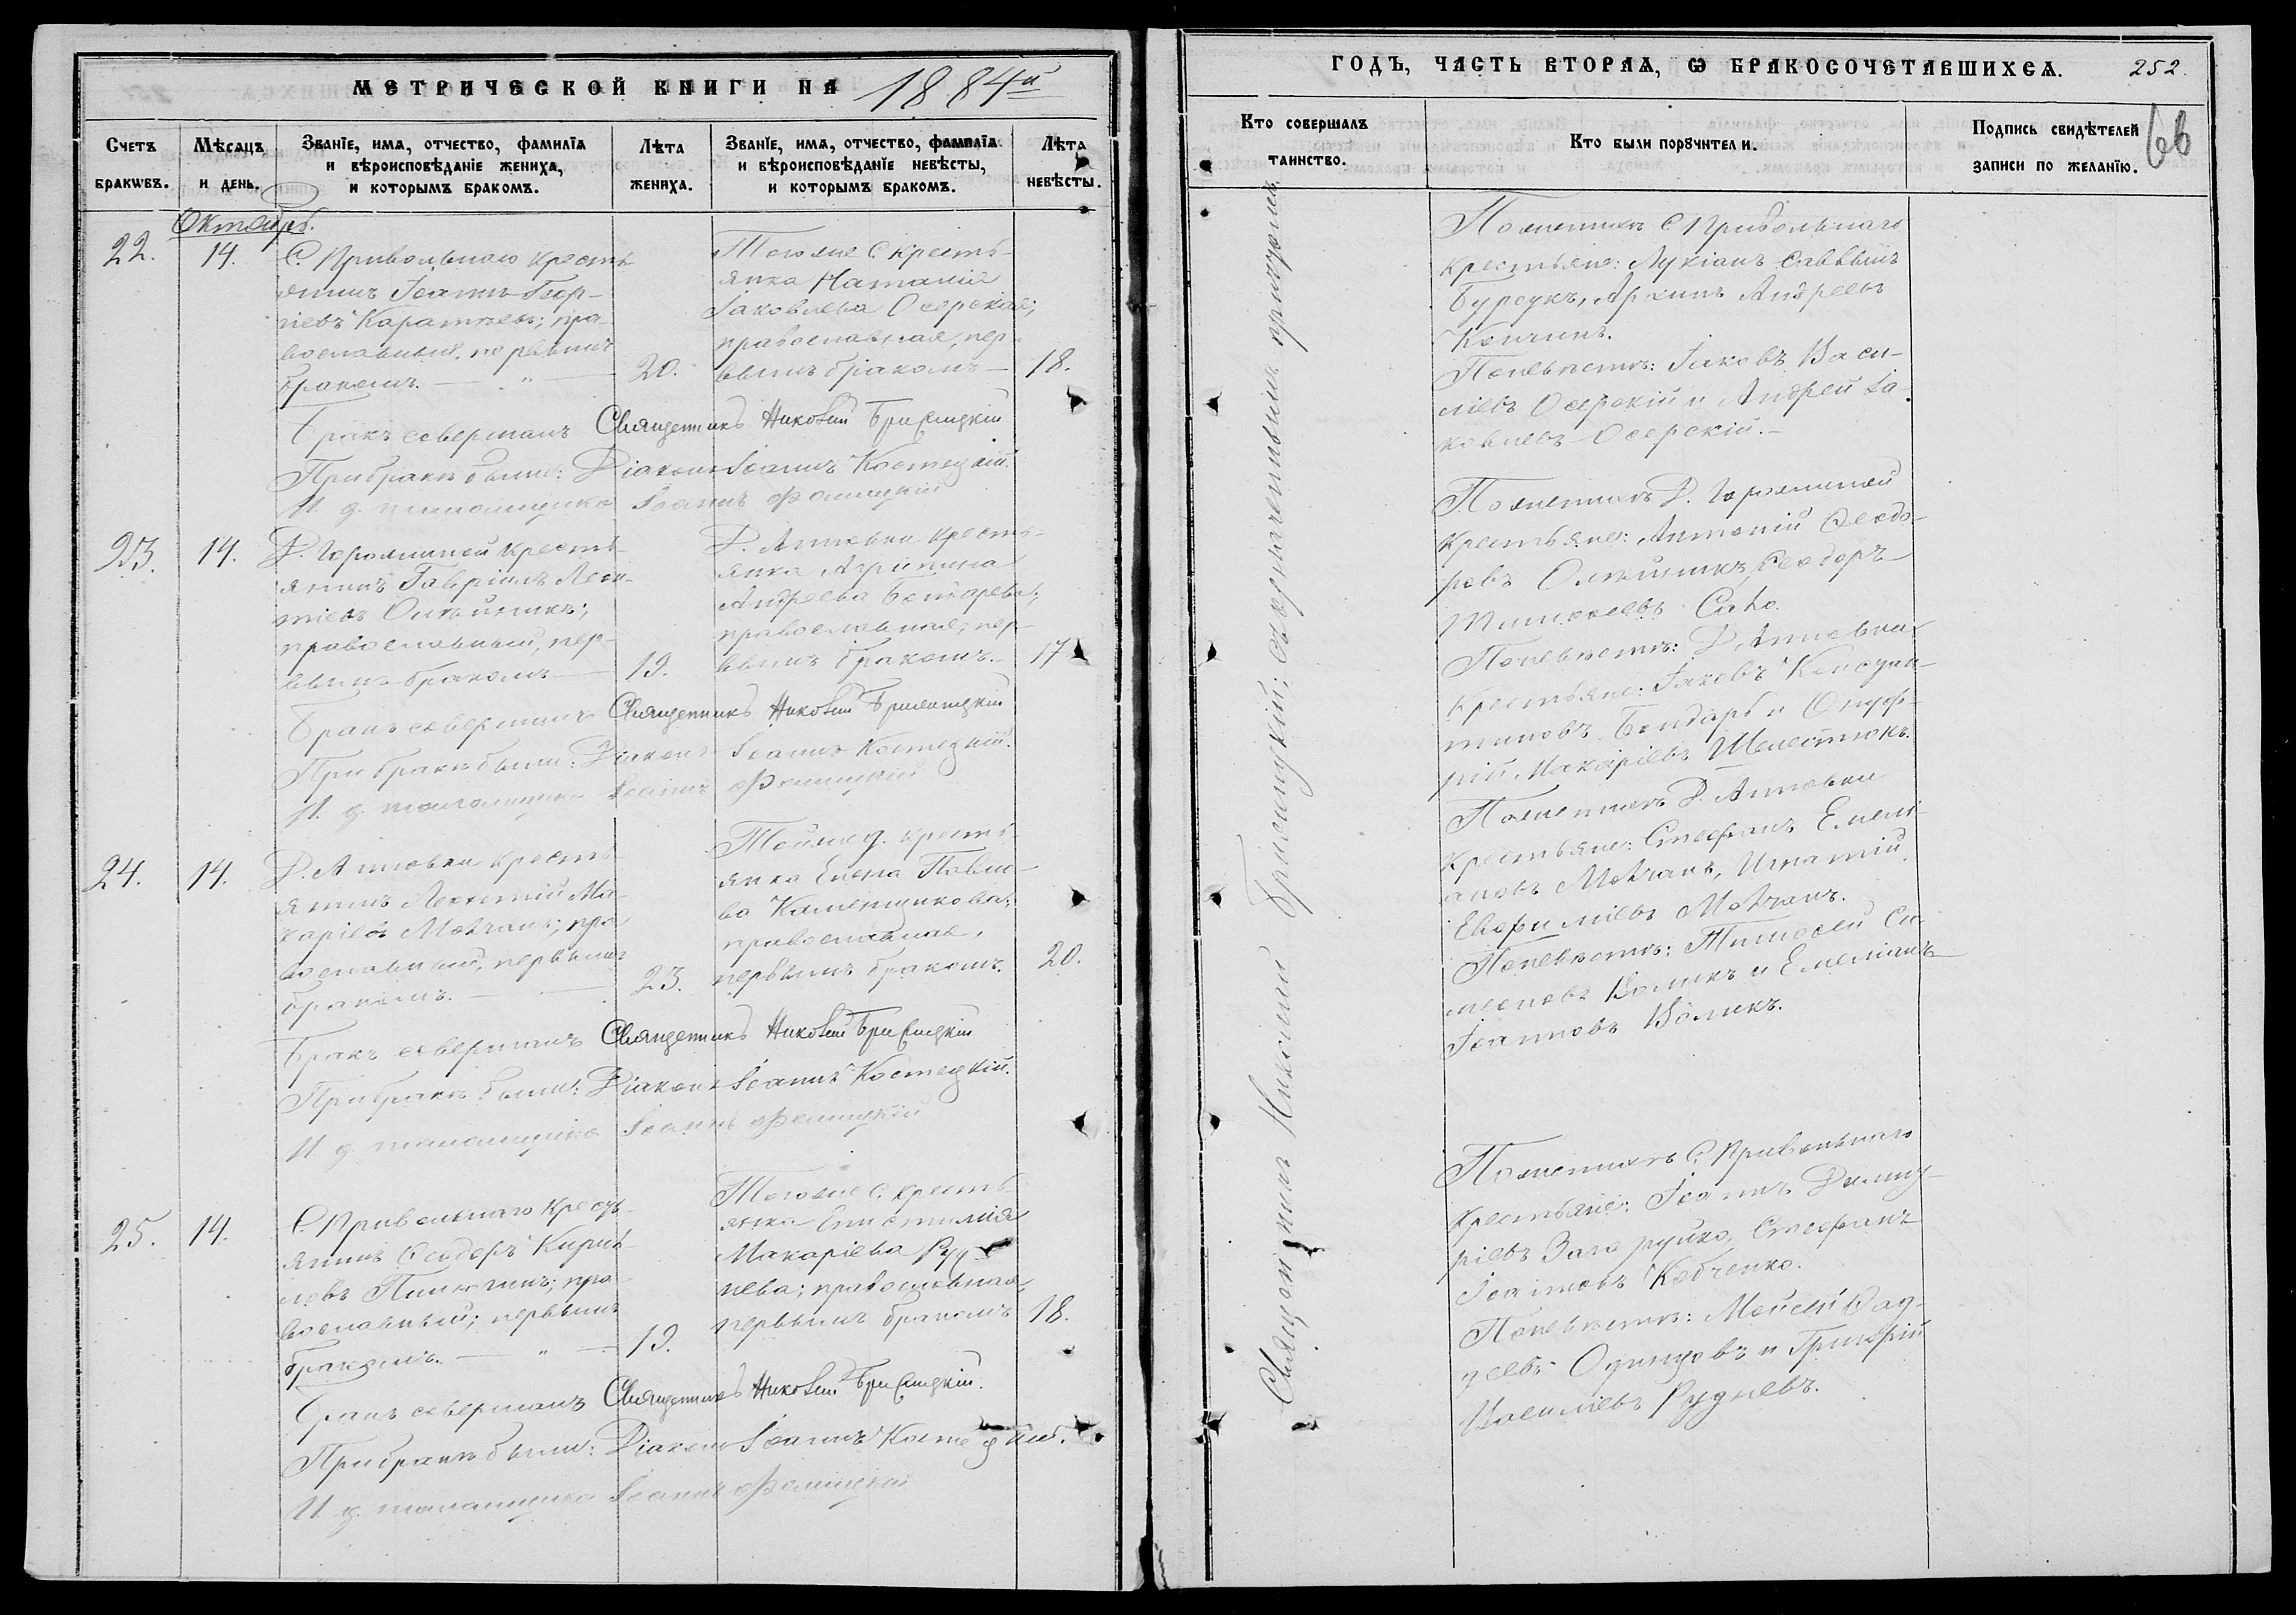 МЕТРИЧЕСКОЙ КНИГИ НА 1884й
Счетъ браковъ.
Мѣсяцъ и день.
Званіе, имя, отчество, фамилія
и вѣроисповѣданіе жениха,
и которымъ бракомъ.
Лѣта
жениха.
Званіе, имя, отчество, фамилія
и вѣроисповѣданіе невѣсты,
и которымъ бракомъ.
Лѣта
невѣсты.
Октябрь.
22.
14.
С. Привольнаго кресть-
янинъ Іоаннъ Геор-
гіевъ
православный, первымъ
бракомъ.
20.
Тогоже с. кресть-
янка Наталія
Іаковлева Осерская;
православная, пер-
вымъ бракомъ
18.
Бракъ совершалъ Священникъ Николай
При бракѣ были: Діаконъ Іоаннъ Костецкій.
И. д. псаломщика Іоаннъ
23.
14.
янинъ Гавріилъ Леон-
тіевъ Олѣйникъ;
православный, пер-
вымъ бракомъ
19.
Д. Анновки кресть-
янка Агрипина
Андреева
православная, пер-
вымъ бракомъ.
17
Бракъ совершалъ Священникъ Николай
При бракѣ были: Діаконъ Іоаннъ Костецкій.
И. д. псаломщика Іоаннъ
24.
14.
Д. Анновки кресть-
янинъ Леонтій Ма-
каріевъ Мовчанъ; пра-
вославный, первымъ
бракомъ.
23.
Тойже д. кресть-
янка Елена Павло-
ва Каменщикова;
православная,
первымъ бракомъ.
20.
Бракъ совершалъ Священникъ Николай
При бракѣ были: Діаконъ Іоаннъ Костецкій.
И. д. псаломщика Іоаннъ
25.
14.
С. Привольнаго кресть-
янинъ Ѳеодоръ Кирил-
ловъ
православный; первымъ
бракомъ.
19.
Тогоже с. кресть-
янка Епистимія
Макаріева Руд-
нева; православная,
первымъ бракомъ
18.
Бракъ совершалъ Священникъ Николай
При бракѣ были: Діаконъ Іоаннъ Костецкій.
И. д. псаломщика Іоаннъ
ГОДЪ, ЧАСТЬ ВТОРАЯ, Ѡ БРАКОСОЧЕТАВШИХСЯ.
252.
66
Кто совершалъ
таинство.
Кто были поручители.
Подпись свидѣтелей
записи по желанію.
Священникъ Николай
По женихѣ С. Привольнаго
крестьяне: Лукіанъ Саввинъ
Бурсукъ, Архипъ Андреевъ
По невѣстѣ: Іаковъ Васи-
ліевъ Осерскій и Андрей Іа-
ковлевъ Осерскій.
По женихѣ Д.
крестьяне: Антоній Ѳеодо-
ровъ Олѣйникъ, Ѳеодоръ
По невѣстѣ: Д. Анновки
крестьяне: Іаковъ Констан-
тиновъ Бондарь и Онуф-
рій Макаріевъ Шелестюкъ.
По женихѣ Д. Анновки
крестьяне: Стефанъ Емелі-
ановъ Мовчанъ, Игнатій
Евфиміевъ Мовчанъ.
По невѣстѣ: Тимоѳей Си-
меоновъ Воликъ и Емеліанъ
Іоанновъ Воликъ.
По женихѣ С. Привольнаго
крестьяне: Іоаннъ Димит-
ріевъ Загоруйко, Стефанъ
Іоанновъ Кобченко.
По невѣстѣ: Моисей Ѳад-
деевъ Одинцовъ и Григорій
Василіевъ Рудневъ.